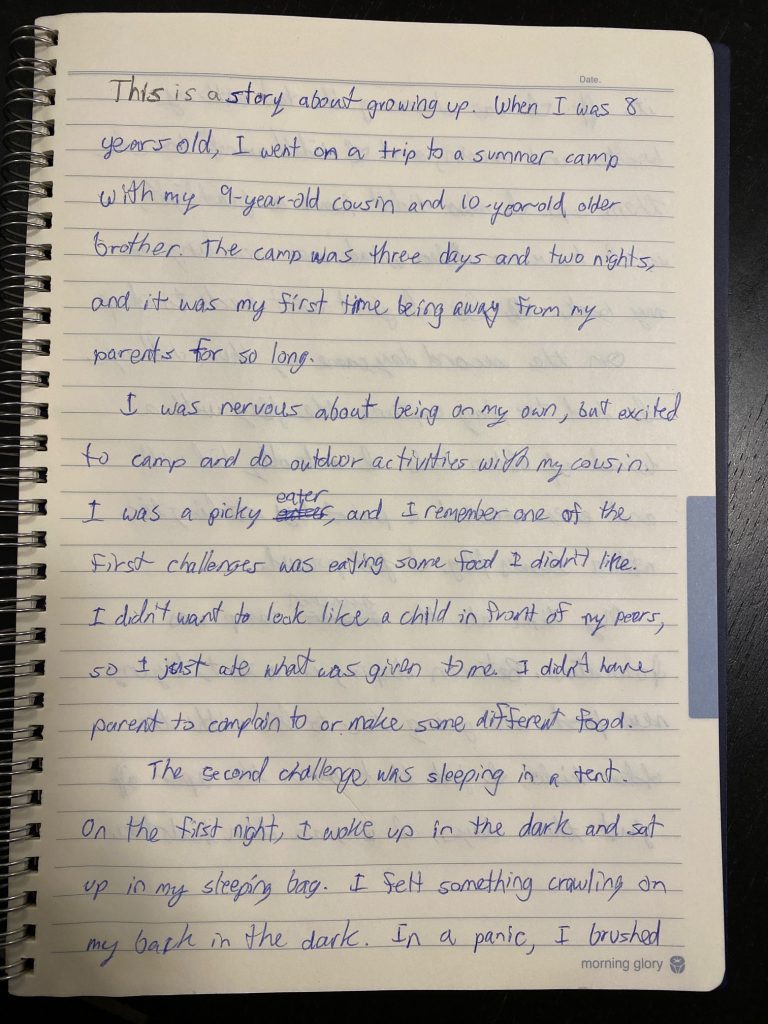 Date.
This is a story about growing up. When I was 8
years old, I went on a trip to a summer camp
with my 9-year-old cousin and 10-year-old older
brother. The camp was three days and two nights,
and it was my first time being away from my
parents for so long.
I was nervous about being on my own, but excited
to camp and do outdoor activities with my cousin.
eater
I was a picky , and I remember one of the
first challenges was eating some food I didn't like.
I didn't want to look like a child in front of my peers,
so I just ate what was given to me. I didn't have
parent to complain to or make some different food.
The second challenge was sleeping in a tent.
On the first night, I woke up in the dark and sat
up in my sleeping bag. I felt something crawling on
my back in the dark. In a panic, I brushed
morning glory